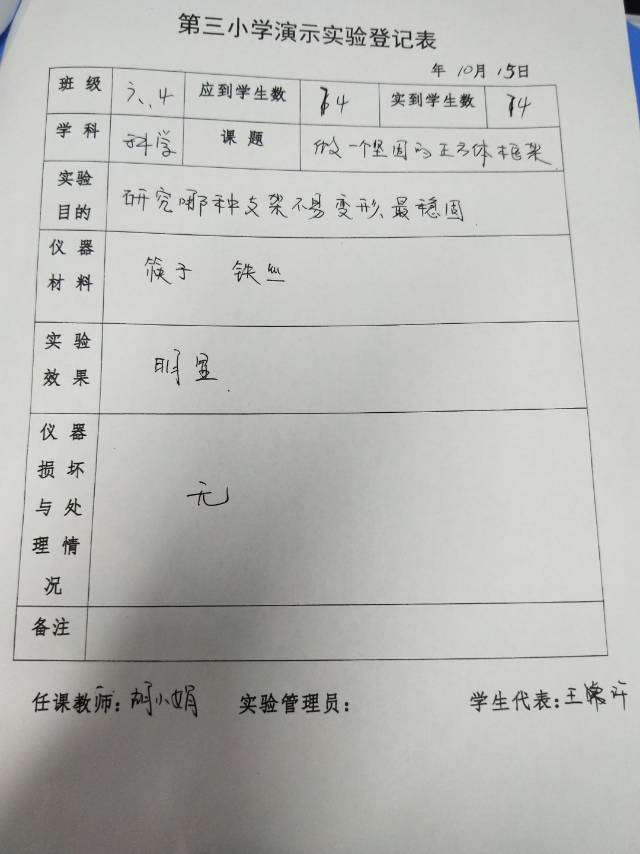 第三小学演示实验登记表
年 10月 15日
班级 六.4 应到学生数 74 实到学生数 74
学科 科学 课题 做一个坚固的正方体框架
实验目的 研究哪种支架不易变形、最稳固
仪器材料 筷子 铁丝
实验效果 明显.
仪器损坏与处理情况 无
备注
任课教师:胡小娟 实验管理员: 学生代表:王